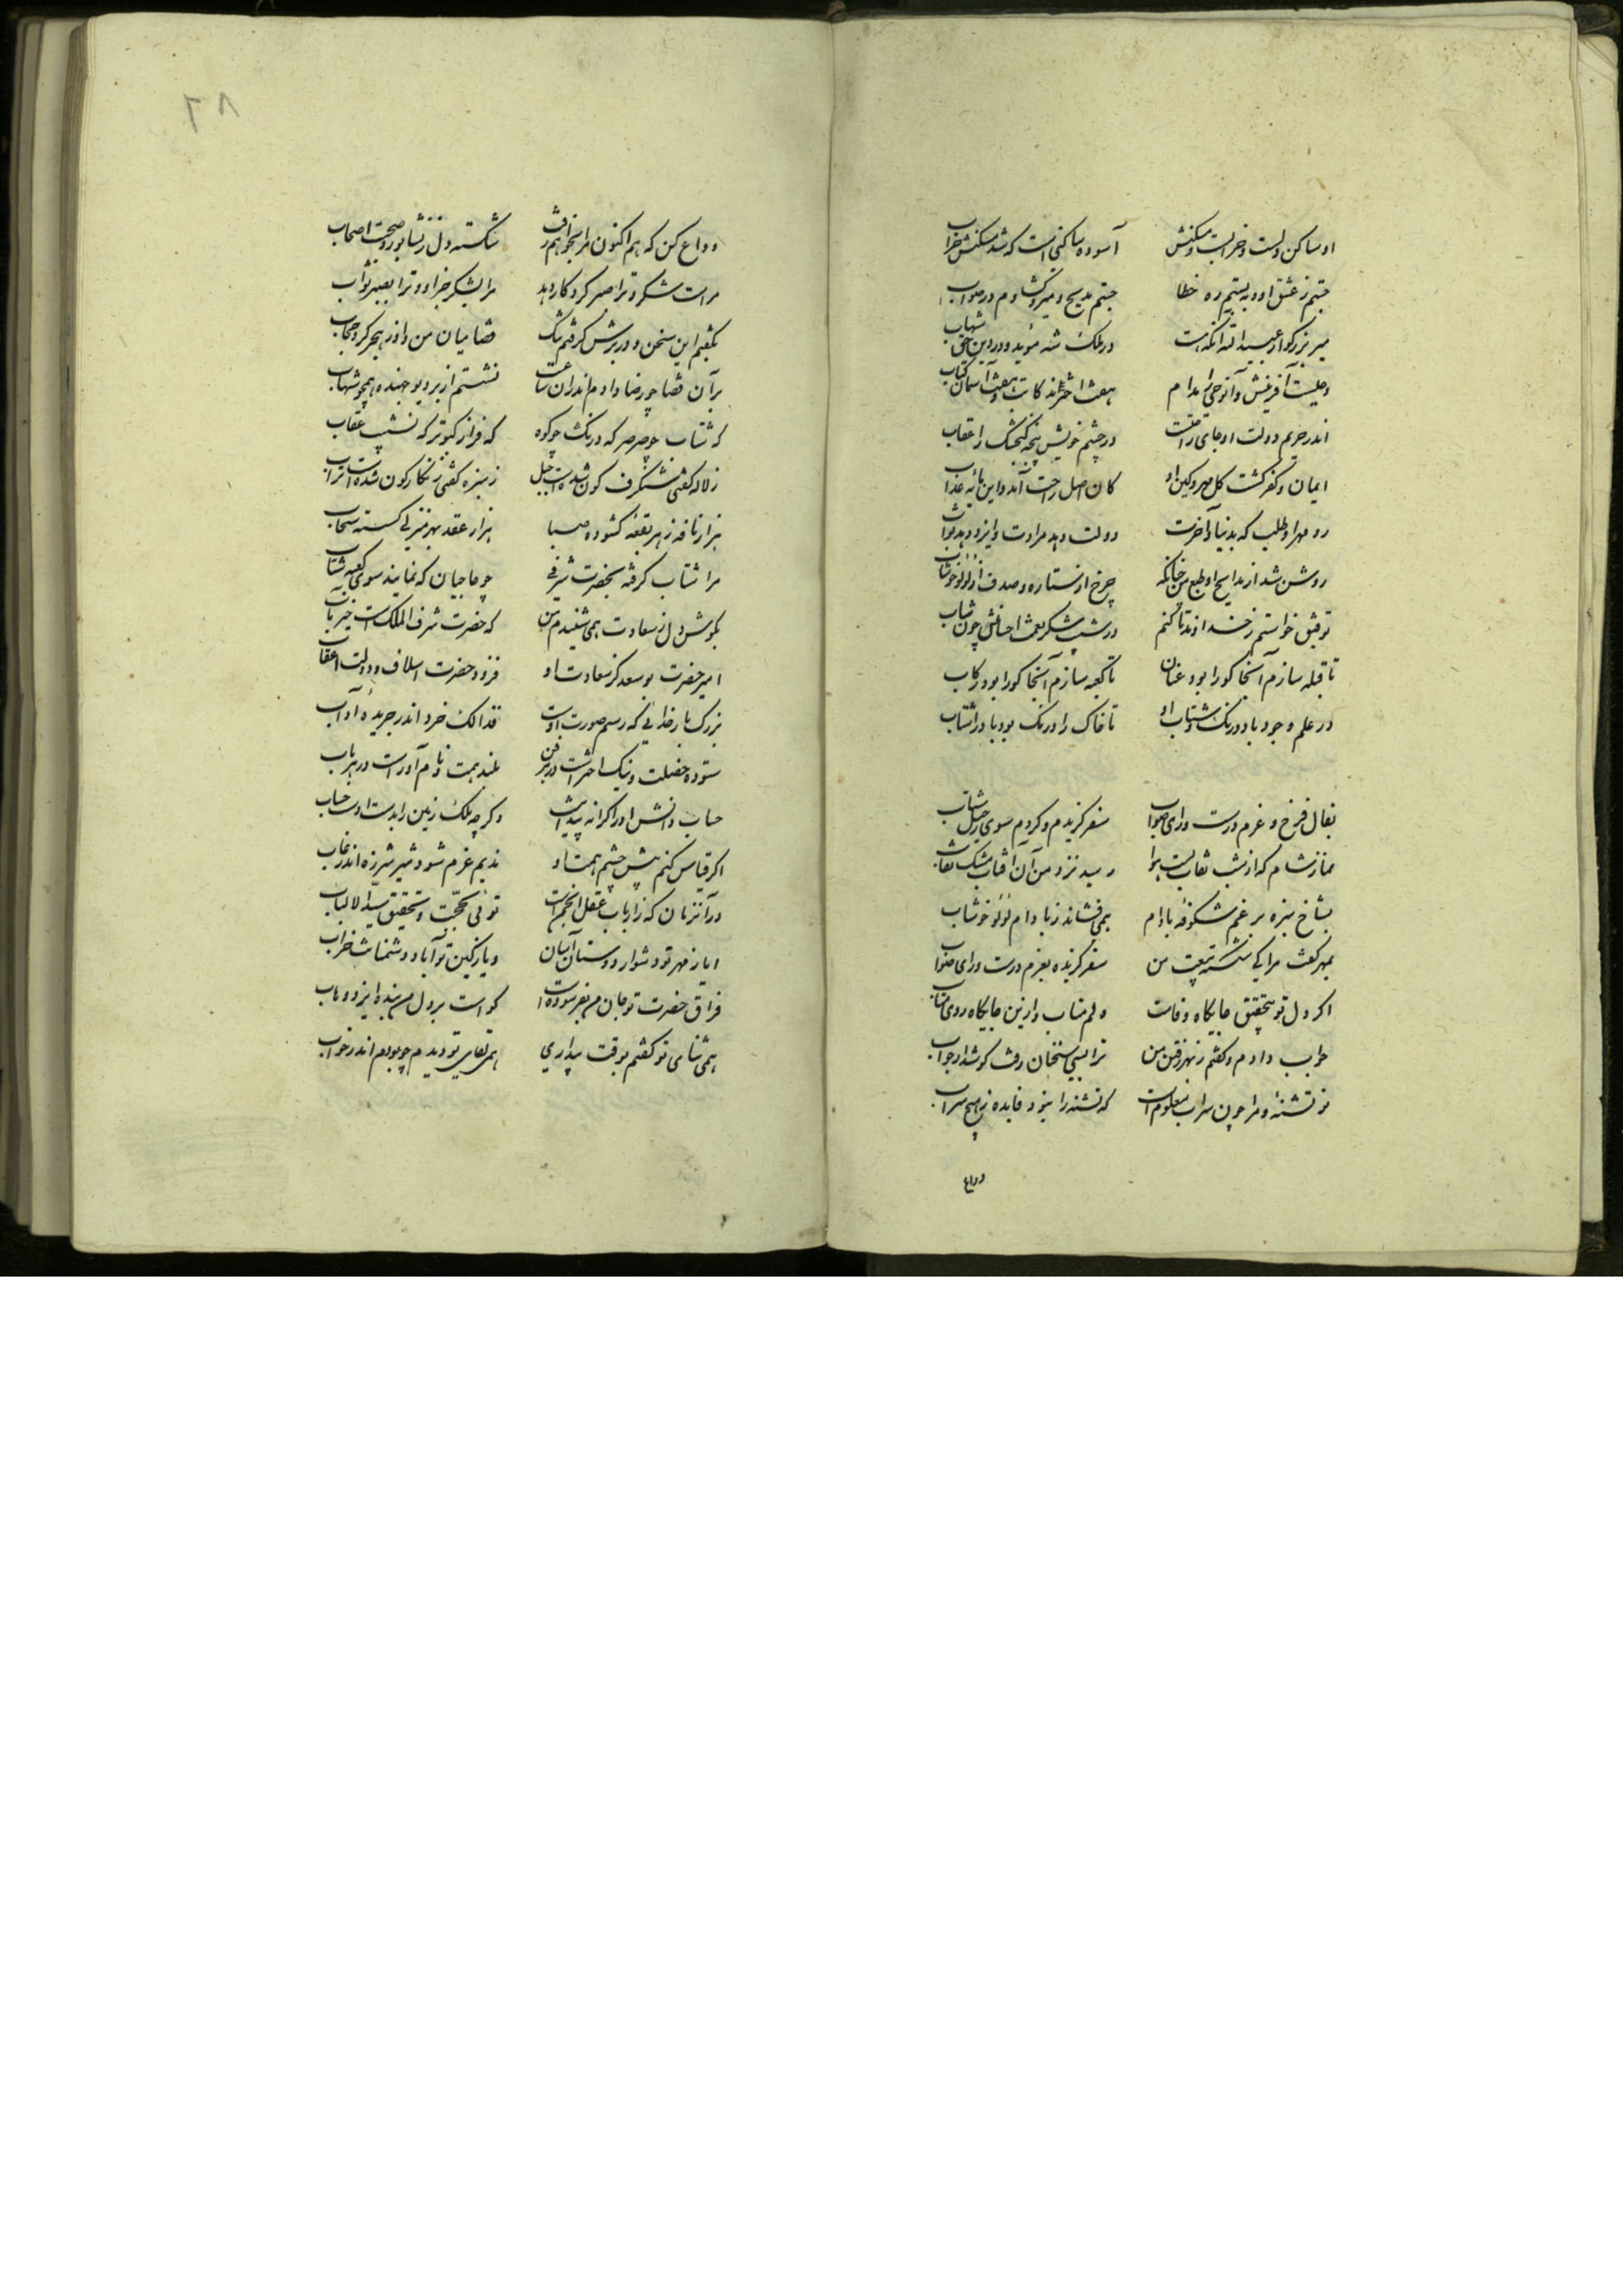 او ساکن دلست و خرابست مسکنش آسوده ساکنی است که شد مسکنش خراب
جستم ز عشق او و ببستم ره خطا جستم مدیح میر و گشادم در صواب
میر بزرگوار عبیدالله آنکه هست در ملک شه مؤید و در دین حق شهاب
آفرینش و مدام هفت اخترند کاتب و هفت آسمان کتاب
اندر حریم دولت او جای رافتست در چشم خویش پنجه کنجشک را عقاب
ایمان و کفر گشت کل مهر و کین او کان اصل راحت آمد و این مایه عذاب
رو مهر او طلب که بدنیا و آخرت دولت دهد مرادت و ایزد دهد ثواب
روشن شد از مدایح او طبع من چنانکه چرخ از ستاره و صدف از لؤلؤ خوشاب
توفیق خواستم ز خداوند تا کنم در شیب شکر نعمت احسانش چون شباب
تا قبله سازم آنجا کورا بود عنان تا کعبه سازم آنجا کورا بود رکاب
در علم وجود باد درنگ و شتاب او تا خاک را درنگ بود باد را شتاب
بفال فرخ و عزم درست و رای صواب سفر گزیدم و کردم سوی رحیل شتاب
نماز شام که از شب نقاب بست هوا رسید نزد من آن آفتاب مشک نقاب
بشاخ سبزه بر غم شکوفه بادام همی فشاند ز بادام لؤلؤ خوشاب
بمهر گفت مرا کای شکسته بیعت من سفر گزیده بعزم درست و رای صواب
اگر دل تو بتحقیق جایگاه وفاست دلم متاب و ازین جایگاه روی متاب
جواب دادم و گفتم ز بهر رفتن من ترا بسی سخنان رفت گوش دار جواب
تو تشنهٔ و مرا چون سراب معلوم است که تشنه را نبود فایده ز هیچ سراب
وداع
۸۶
وداع کن که هم اکنون مرا بخواهم رفت شکسته دل ز نشابور و صحبت اصحاب
مراست شکر و ترا صبر کردگار دهد مرا بشکر جزا و ترا بصبر ثواب
بگفتم این سخن و در برش گرفتم تنگ قضا میان من و او ز هجر کرد حجاب
بر آن قضا چو رضا دادم اندران ساعت نشستم از بر دیو جهنده همچو شهاب
که شتاب چو صرصر که درنگ چو کوه که فراز کبوتر که نشیب عقاب
ز لاله گفتی شنگرف گون شدست جبل ز سبزه گفتی زنگارگون شده است تراب
هزار نافه ز هر بقعه گشوده صبا هزار عقد بهر منزلی گسسته سحاب
مرا شتاب گرفته بحضرت شرفی چو حاجیان که نمایند سوی کعبه شتاب
بگوش دل ز سعادت همی شنیدم من که حضرت شرف الملک است خیر مآب
امیر حضرت بوسعد کز سعادت او فزود حضرت اسلاف و دولت اعقاب
بزرگ بارخدائی که رسم صورت اوست فذالک خرد اندر جریدهٔ آداب
ستوده خصلت و نیک اختر است در هر فن بلند همت و نام آور است در هر باب
حساب دانش او را کرانه پیدا نیست و گرچه ملک زمین را بدست اوست حساب
اگر قیاس کنم پیش چشم همت او ندیم غرم شود شیر شرزه اندر غاب
در آن زمان که ز ارباب عقل انجمن است توئی بحجت و تحقیق سید الالباب
ایا ز مهر تو دشوار دوستان آسان و یا ز کین تو آباد دشمنانت خراب
فراق حضرت تو جان من بفرسوده است گواست بر دل من بنده ایزد وهاب
همی ثنای تو گفتم بوقت بیداری همی لقای تو دیدم چو بودم اندر خواب